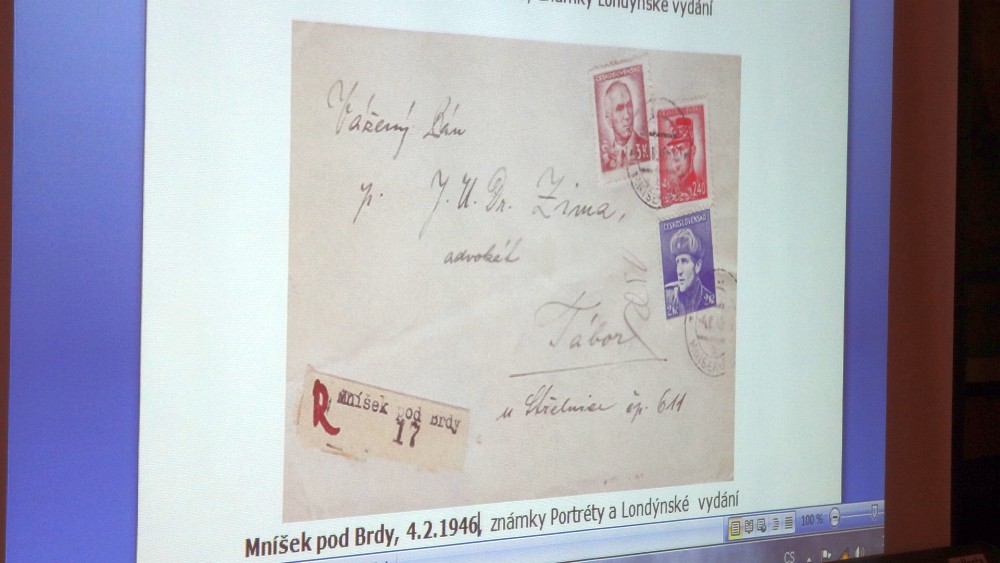 známky Londýnské vydání
Vážený Pán
p. J.U.Dr. Zima,
advokát
Tábor
u Střelnice čp. 611
ČESKOSLOVENSKO
3K
2·40
ČESKOSLOVENSKO
2K 2K
R Mníšek pod Brdy
17
Mníšek pod Brdy, 4.2.1946, známky Portréty a Londýnské vydání
100 %
CS